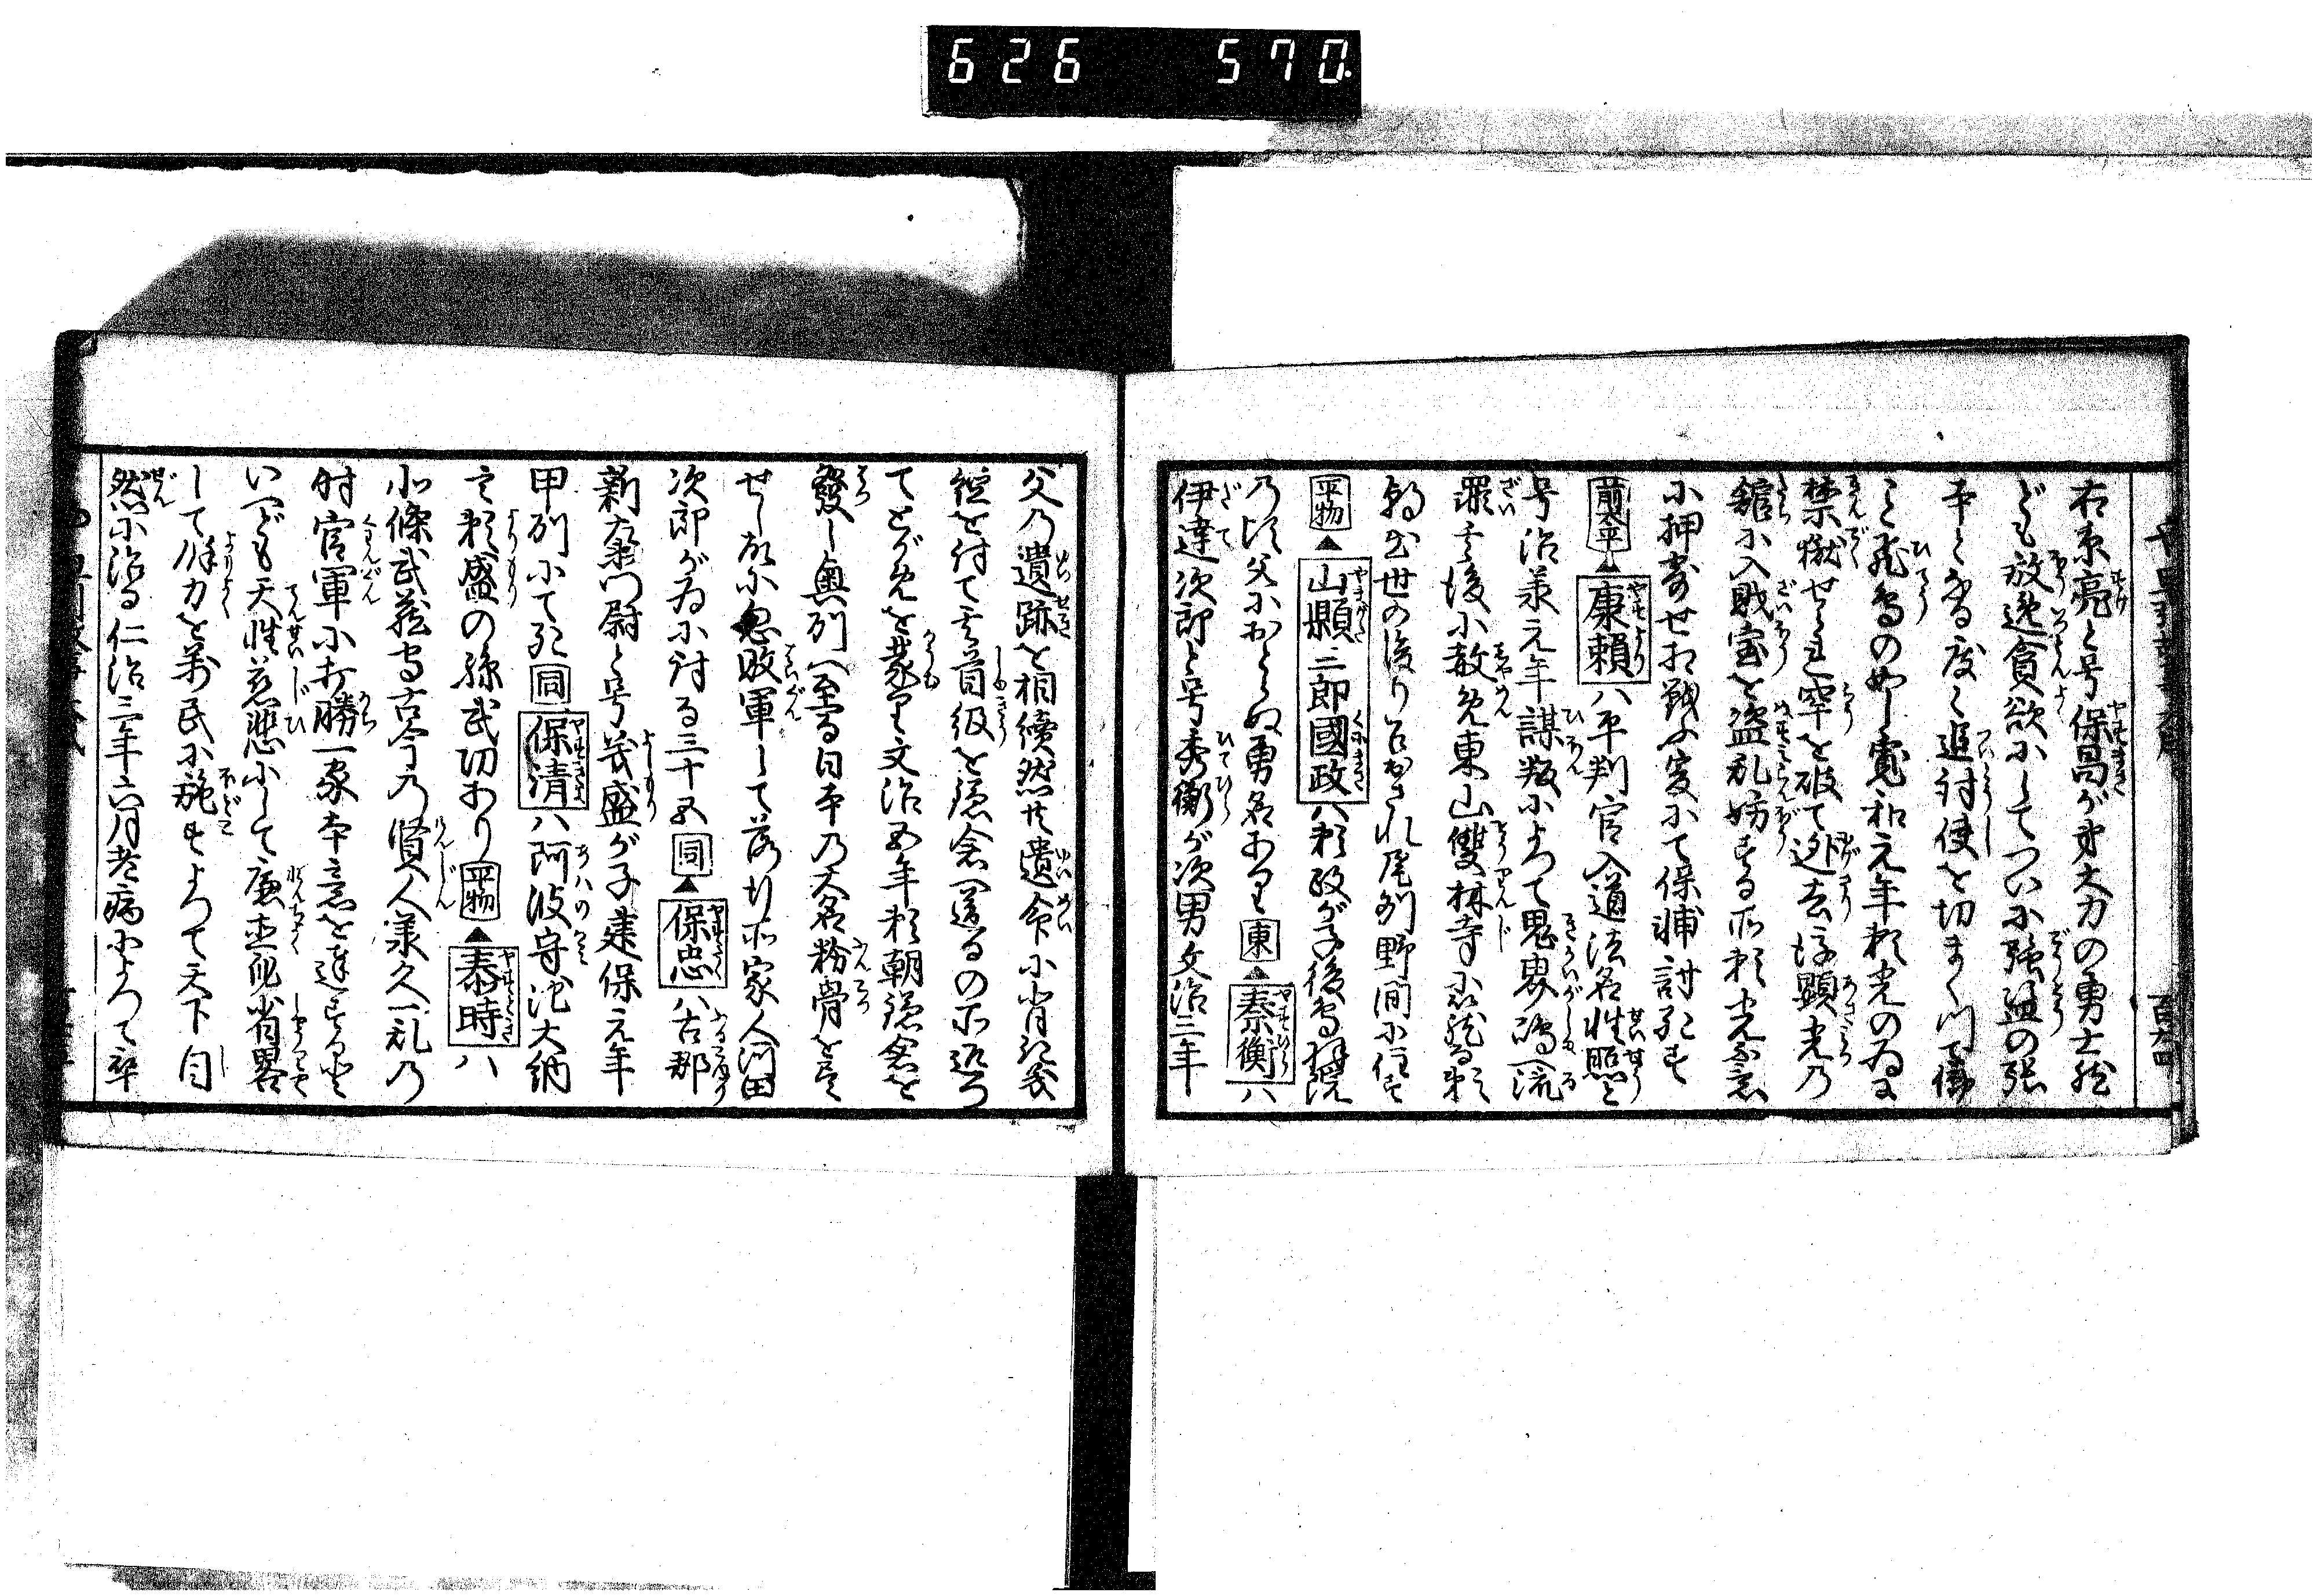 626 570.
百六十四
右京亮と号保昌が弟大力の勇士然
ども放逸貪欲にしてついに強盗の張
本となる度〻追討使を切まくつて働
こと飛鳥の如し寛和元年頼光のゐに
禁獄せらる窂を破て迯去後顕光の
舘に入財宝を盗乱妨する所頼光不意
に押寄せ相戦ふ爰にて保輔討死す
前太平▲康頼ハ平判官入道法名性照と
号治承元年謀叛によつて鬼界が嶋へ流
罪其後に赦免東山雙林寺に
勢出世の後り尾州野間に住す
平物▲山縣二郎國政ハ頼政が子後鳥羽院
乃頃父におとらぬ勇名あり 東▲泰衡ハ
伊達次郎と号秀衡が次男文治三年
父乃遺跡を相續然共遺命に背き義
經を付て其首級を鎌倉へ送るの所返つ
てとがめを蒙り文治五年頼朝鎌倉を
發し奥列へ至る日本乃大名粉骨を尽
せし故に忽敗軍して落行所家人河田
次郎がゐに討る三十五 同▲保忠ハ古那
新左衛門尉と号義盛が子建保元年
甲列にて死 同 保清ハ阿波守池大納
言頼盛の孫武功あり 平物▲泰時ハ
北條武藏守古今乃賢人承久一乱乃
時官軍に打勝一家本意を達すると
いへども天性慈悲にして廉直眦省畧
して餘力を万民に施すよつて天下自
然に治る仁治三年六月老病によつて卒